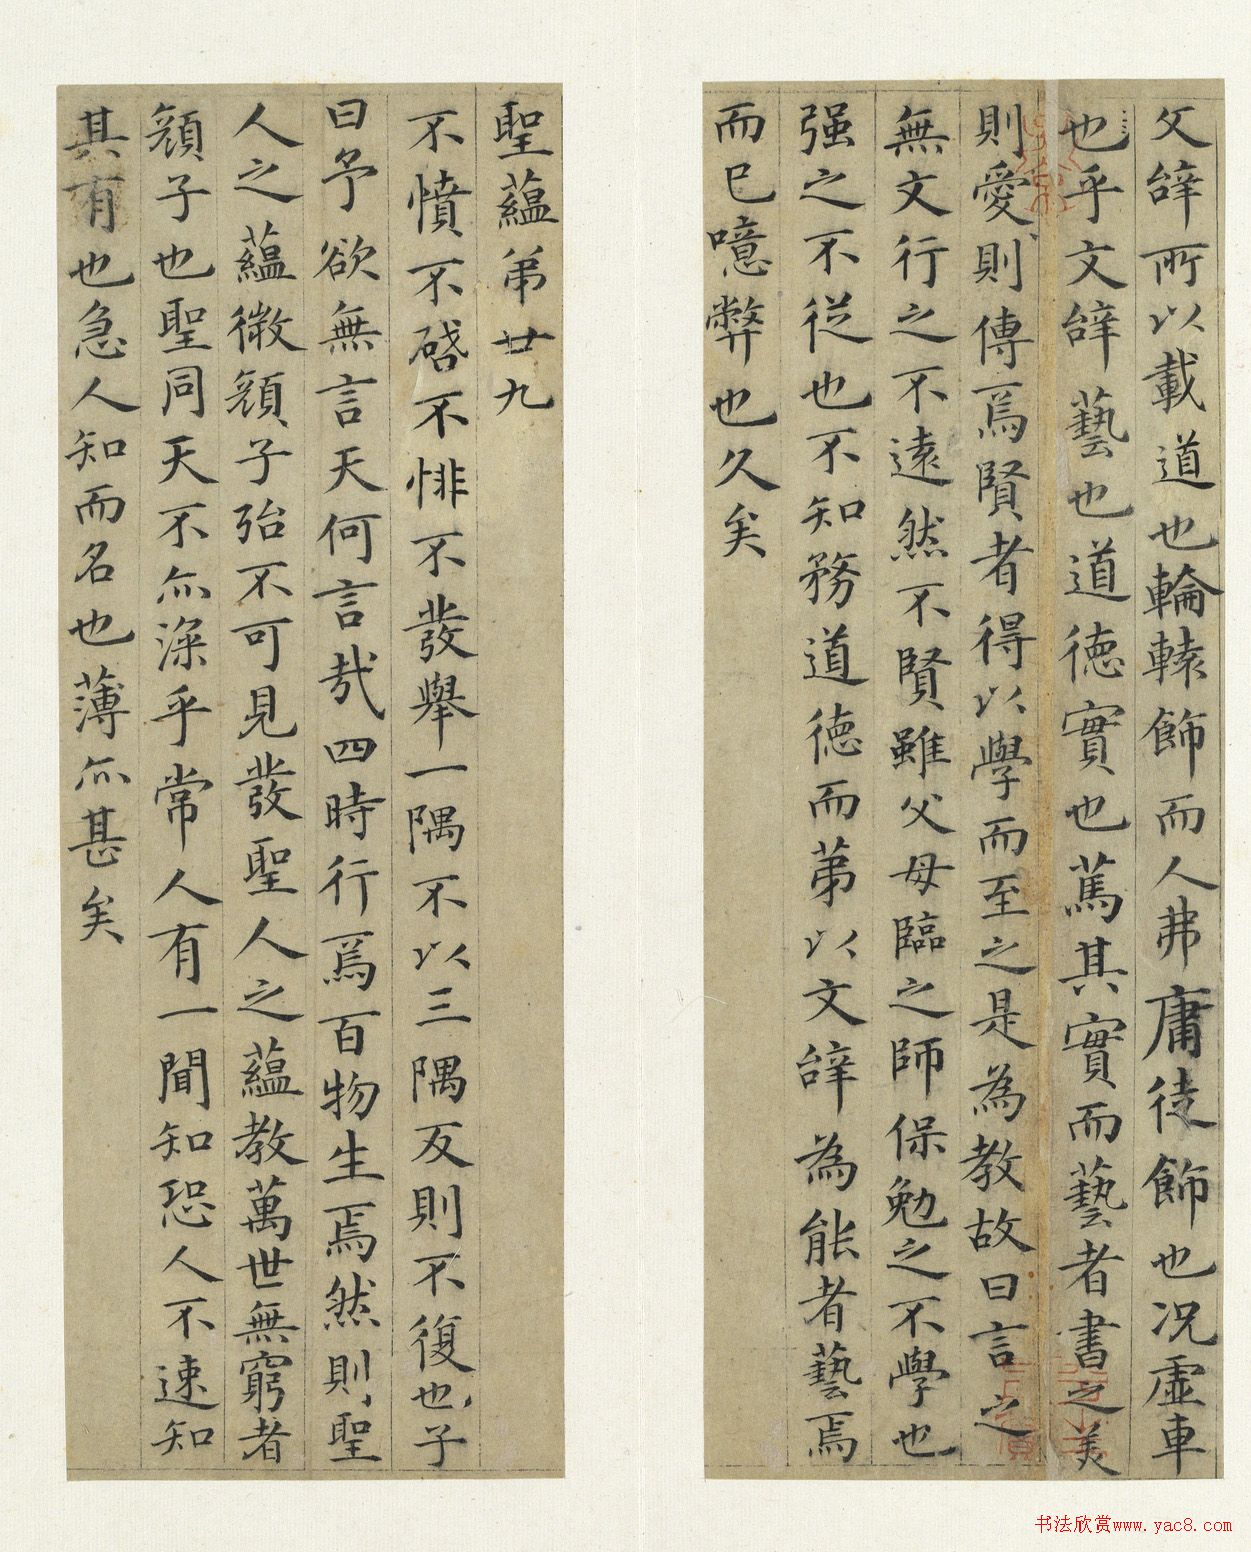 文辝所以載道也輪轅飾而人弗庸徒飾也况虛車
也乎文辝藝也道徳實也篤其實而藝者書之美
則愛則傳焉賢者得以學而至之是為教故曰言之
無文行之不遠然不賢雖父母臨之師保勉之不學也
强之不從也不知務道徳而苐以文辝為能者藝焉
而已噫弊也久矣
聖蘊苐廿九
不憤不啓不悱不發舉一隅不以三隅反則不復也子
曰予欲無言天何言㦲四時行焉百物生焉然則聖
人之蘊微顔子殆不可見發聖人之蘊教萬世無窮者
顔子也聖同天不亦深乎常人有一聞知恐人不速知
其有也急人知而名也薄亦甚矣
书法欣赏www.yac8.com